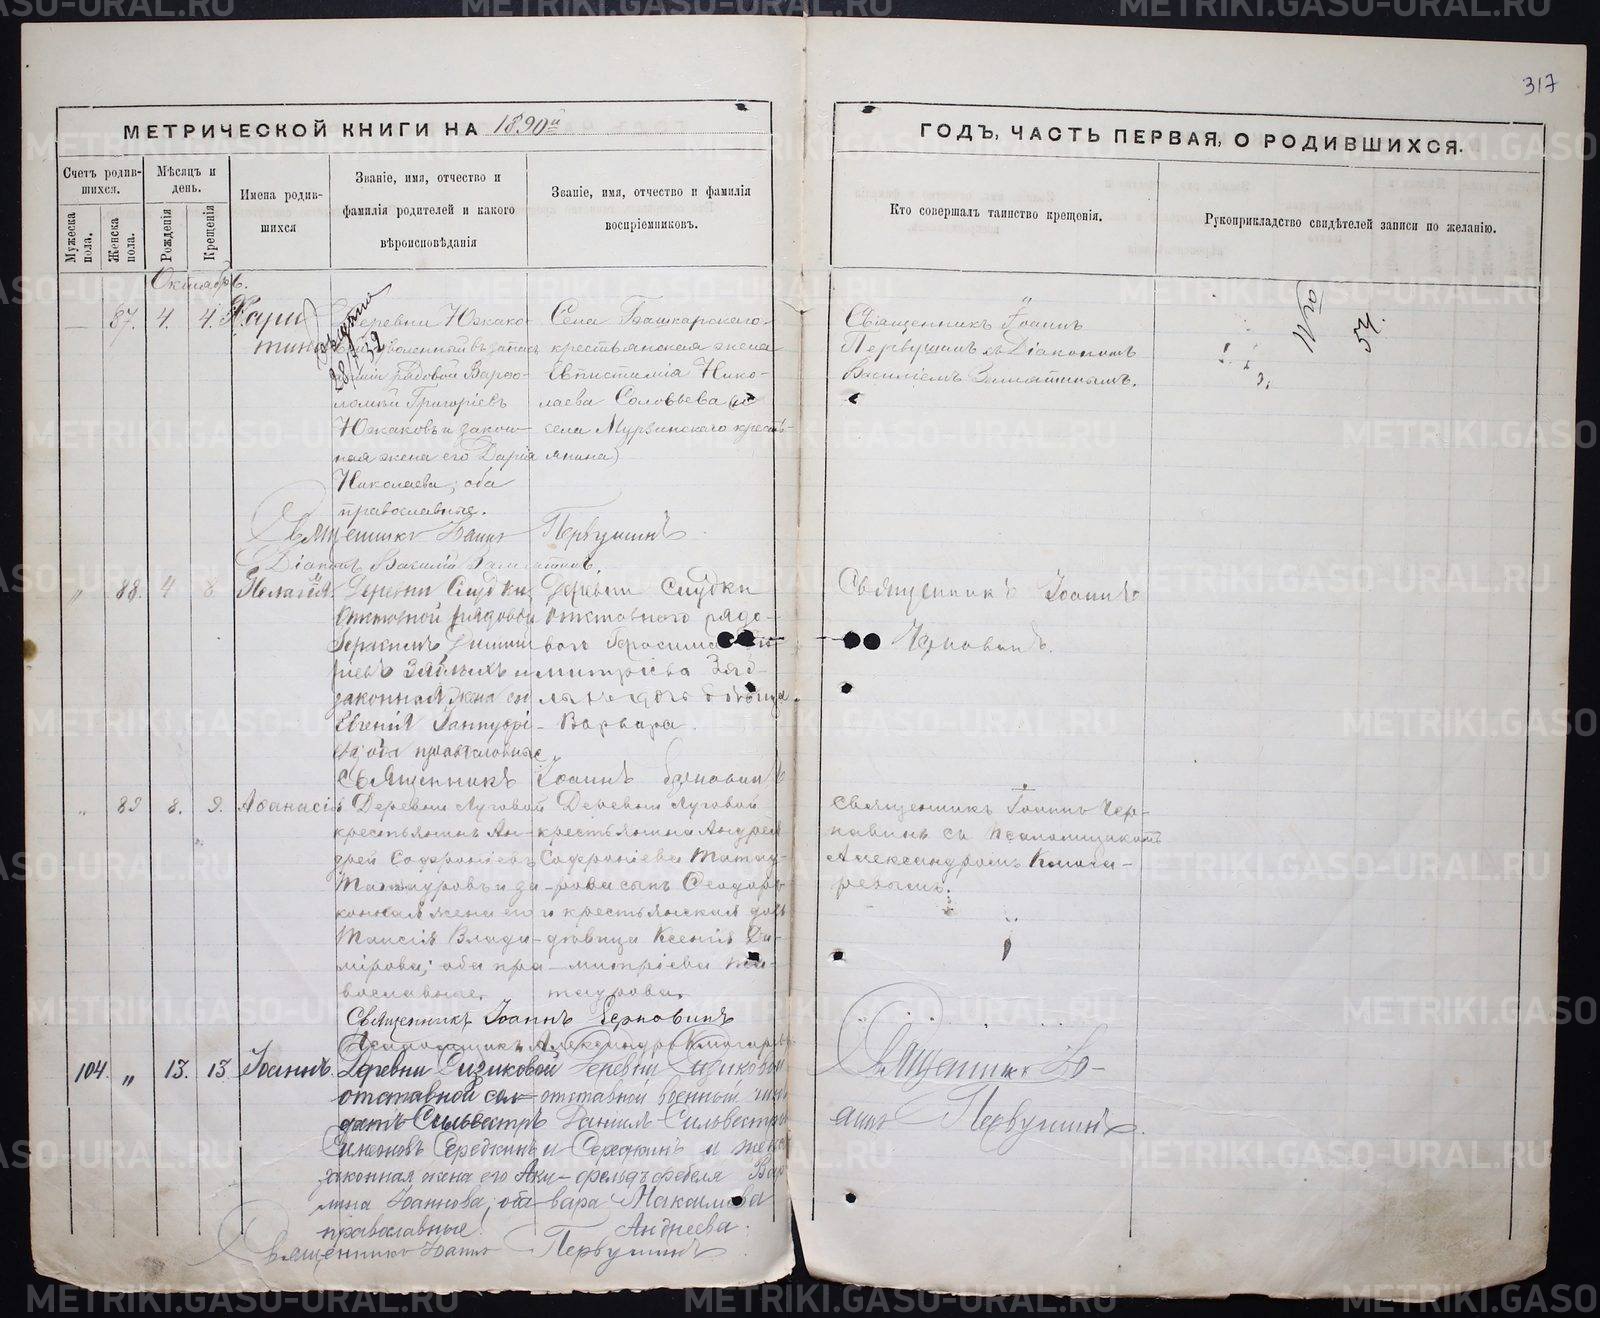 317
МЕТРИЧЕСКОЙ КНИГИ НА 1890й
ГОДЪ, ЧАСТЬ ПЕРВАЯ, О РОДИВШИХСЯ.
Счетъ родив-
шихся.
Мужеска
пола.
Женска
пола.
Мѣсяцъ и
день.
Рожденія
Крещенія
Имена родив-
шихся
Званіе, имя, отчество и
фамилія родителей и какого
вѣроисповѣданія
Званіе, имя, отчество и фамилія
воспріемниковъ.
Кто совершалъ таинство крещенія.
Рукоприкладство свидѣтелей записи по желанію.
Октябрь.
87. 4. 4. Хари-
тина
Деревни Южако-
вой уволенный въ запасъ
арміи рядовой Варѳо-
ломей Григоріевъ
Южаковъ и закон-
ная жена его Дарія
Николаева, оба
православные.
Села Башкарскаго
крестьянская жена
Епистимія Нико-
лаева Соловьева (и
села Мурзинскаго кресть-
янина)
Священникъ Іоаннъ
Первушинъ съ Діакономъ
Василіемъ
54.
Священникъ Іоаннъ Первушинъ
Діаконъ Василій
88. 4 8 Пелагія
Деревни Слудки
отставной рядовой
Герасимъ Димит-
ріевъ Зяблыхъ и
законная жена его
Евгенія
оба православные
Деревни Слудки
отставного рядо-
вого Герасима Ди-
митріева Зяб-
лыхъ дочь дѣвица
Варвара
Священникъ Іоаннъ
Черновинъ.
Священникъ Іоаннъ Черновинъ
89 8. 9. Аѳанасія
Деревни Луговой
крестьянинъ Ан-
дрей Софроніевъ
Татауровъ и за-
конная жена его
Таисія Влади-
мірова; оба пра-
вославные.
Деревни Луговой
крестьянина Андрея
Софроніева Татау-
рова сынъ Ѳеодоръ
и крестьянская дочь
дѣвица Ксенія Ди-
митріева Та-
таурова.
Священникъ Іоаннъ Чер-
навинъ съ псаломщикомъ
Александромъ Ключа-
ревымъ.
Священникъ Іоаннъ Черновинъ
Псаломщикъ Александръ Ключаревъ
104. „ 13. 13 Іоаннъ.
Деревни Сизиковой
отставной сол-
датъ Сильвестръ
Симоновъ Середкинъ и
законная жена его Аку-
лина Іоаннова, оба
православные.
Деревни Сизиковой
отставной военный
Даніилъ Сильвестровъ
Середкинъ и жена
фельдфебеля Вар-
вара Максимова
Андреева.
Священникъ Іо-
аннъ Первушинъ.
Священникъ Іоаннъ Первушинъ
METRIKI.GASO-URAL.RU